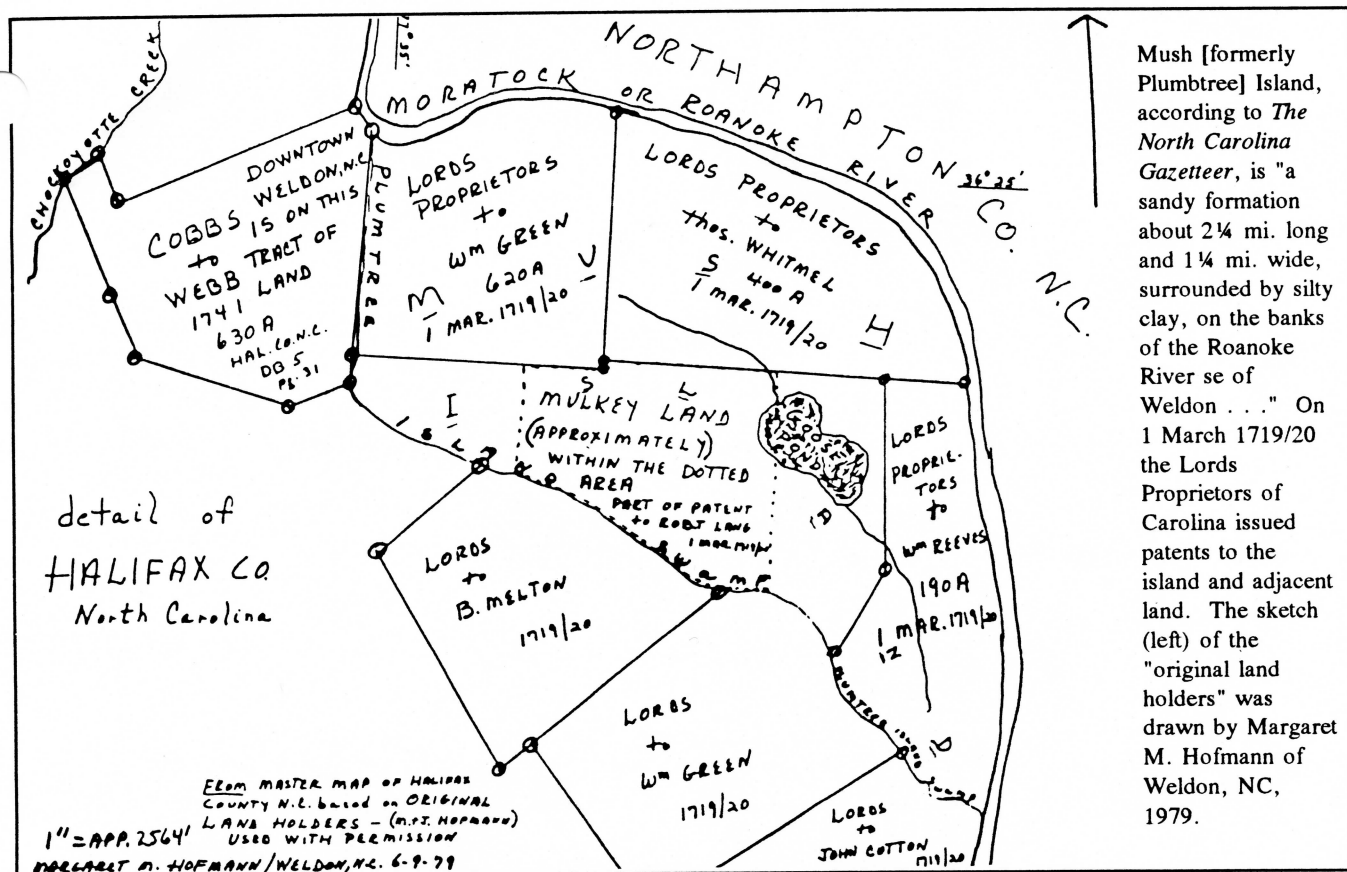 NORTHAMPTON CO. N.C.
MORATOCK OR ROANOKE RIVER
36° 25'
CHOCKOYOTTE CREEK
DOWNTOWN
WELDON, N.C.
IS ON THIS
TRACT OF
LAND
COBBS
to
WEBB
1741
630 A
HAL. CO. N.C.
DB 5
PG. 31
PLUMTREE
ISLAND
SWAMP
LORDS
PROPRIETORS
to
Wm GREEN
620 A
1 MAR. 1719/20
LORDS PROPRIETORS
to
Thos. WHITMEL
400 A
1 MAR. 1719/20
M U S H
I S L A N D
MULKEY LAND
(APPROXIMATELY)
WITHIN THE DOTTED
AREA
PART OF PATENT
to ROBT LANG
1 MAR 1719/20
GOOSE
POND
LORDS
PROPRIE-
TORS
to
Wm REEVES
190 A
1 MAR. 1719/20
LORDS
to
B. MELTON
1719/20
LORDS
to
Wm GREEN
1719/20
PLUMTREE ISLAND SWAMP
LORDS
to
JOHN COTTON
1719/20
detail of
HALIFAX CO.
North Carolina
FROM MASTER MAP OF HALIFAX
COUNTY N.C. based on ORIGINAL
LAND HOLDERS – (M.+J. HOFMANN)
USED WITH PERMISSION
1" = APP. 2564'
MARGARET M. HOFMANN/WELDON, N.C. 6-9-79
Mush [formerly
Plumbtree] Island,
according to The
North Carolina
Gazetteer, is "a
sandy formation
about 2¼ mi. long
and 1¼ mi. wide,
surrounded by silty
clay, on the banks
of the Roanoke
River se of
Weldon . . ." On
1 March 1719/20
the Lords
Proprietors of
Carolina issued
patents to the
island and adjacent
land. The sketch
(left) of the
"original land
holders" was
drawn by Margaret
M. Hofmann of
Weldon, NC,
1979.